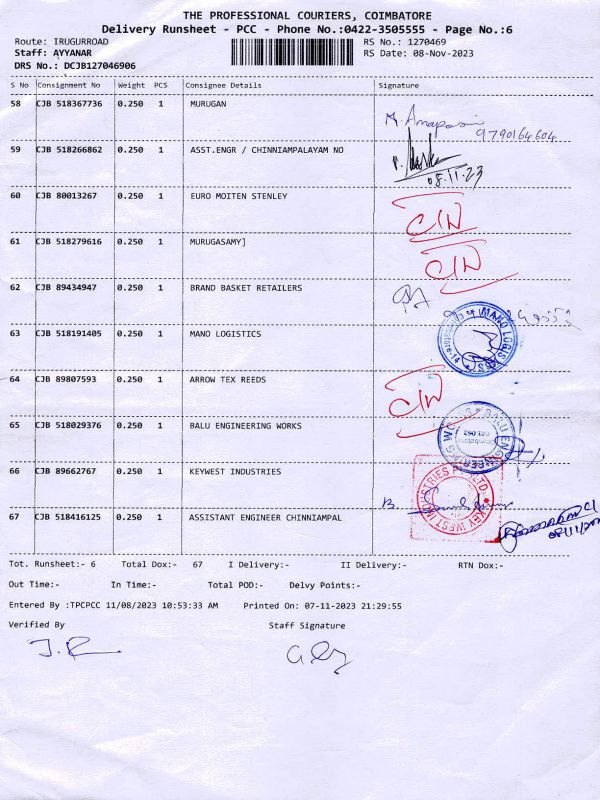 THE PROFESSIONAL COURIERS, COIMBATORE
Delivery Runsheet - PCC - Phone No.:0422-3505555 - Page No.:6
Route: IRUGURROAD RS No.: 1270469
Staff: AYYANAR RS Date: 08-Nov-2023
DRS No.: DCJB127046906
S No Consignment No Weight PCS Consignee Details Signature
58 CJB 518367736 0.250 1 MURUGAN
9790164604
59 CJB 518266862 0.250 1 ASST.ENGR / CHINNIAMPALAYAM NO
08.11.23
60 CJB 80013267 0.250 1 EURO MOITEN STENLEY
61 CJB 518279616 0.250 1 MURUGASAMY]
62 CJB 89434947 0.250 1 BRAND BASKET RETAILERS
63 CJB 518191405 0.250 1 MANO LOGISTICS
MANO LOGISTICS
64 CJB 89807593 0.250 1 ARROW TEX REEDS
65 CJB 518029376 0.250 1 BALU ENGINEERING WORKS
66 CJB 89662767 0.250 1 KEYWEST INDUSTRIES
67 CJB 518416125 0.250 1 ASSISTANT ENGINEER CHINNIAMPAL
Tot. Runsheet:- 6 Total Dox:- 67 I Delivery:- II Delivery:- RTN Dox:-
Out Time:- In Time:- Total POD:- Delvy Points:-
Entered By :TPCPCC 11/08/2023 10:53:33 AM Printed On: 07-11-2023 21:29:55
Verified By Staff Signature